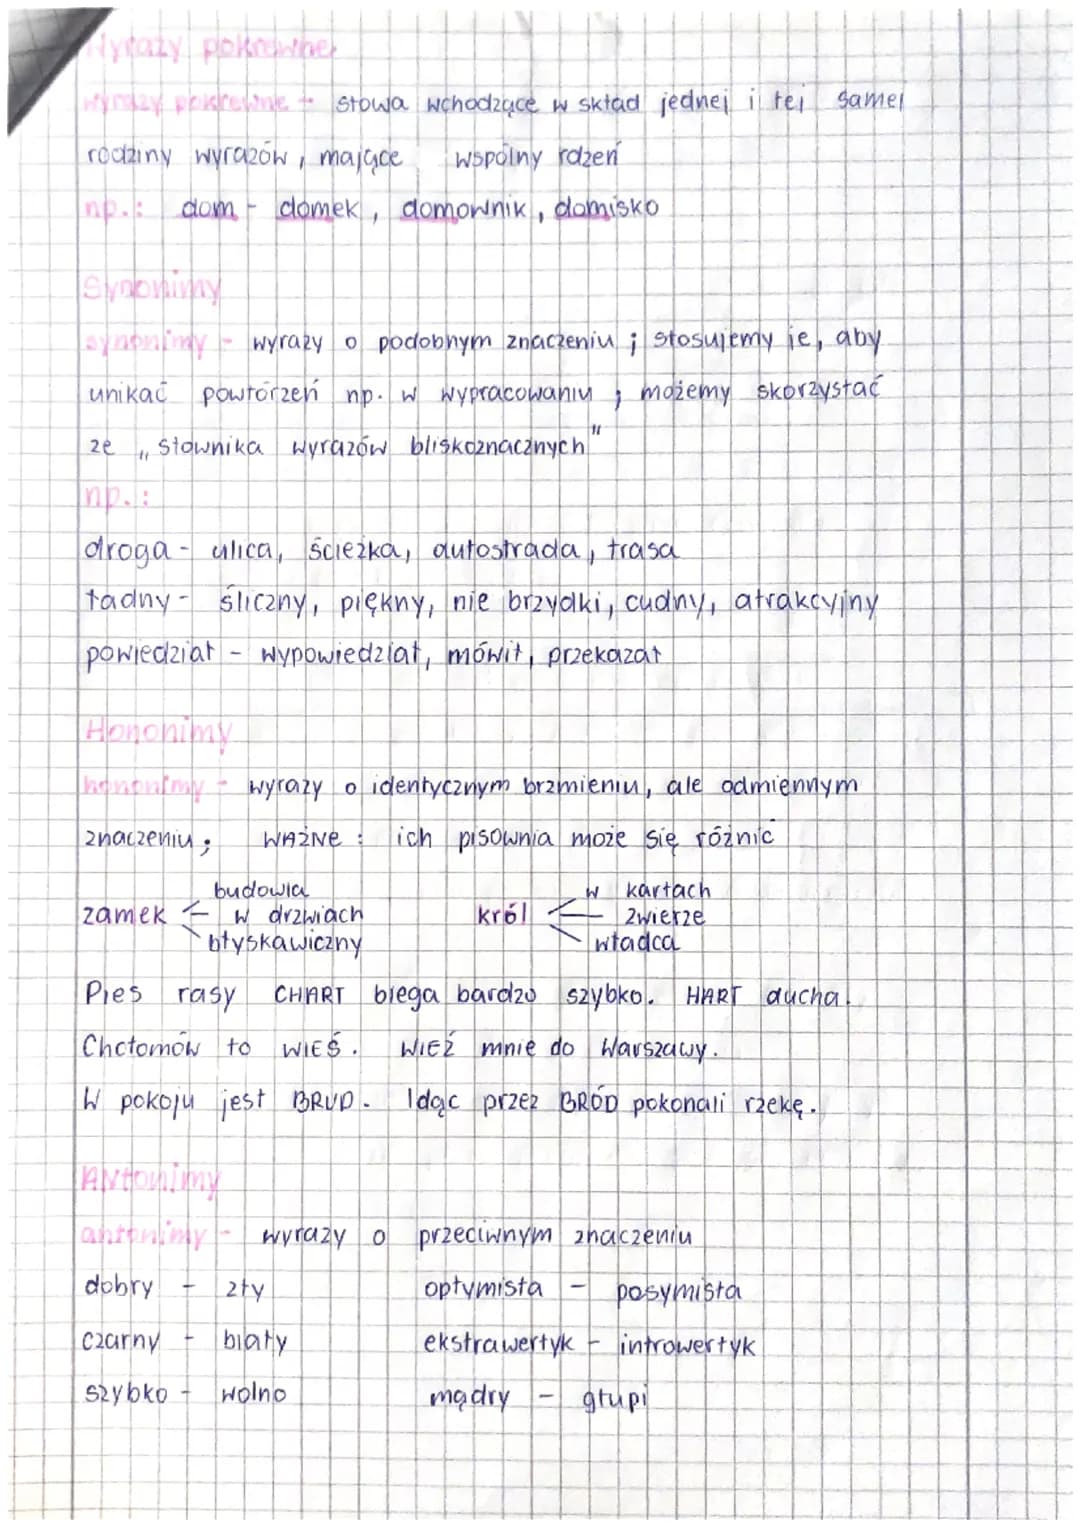 Wyrazy pokrewne
wyrazy pokrewne - słowa wchodzące w skład jednej i tej samej
rodziny wyrazów, mające wspólny rdzeń
np.: dom - domek, domownik, domisko
Synonimy
synonimy - wyrazy o podobnym znaczeniu; stosujemy je, aby
unikać powtórzeń np. w wypracowaniu; możemy skorzystać
ze „Słownika wyrazów bliskoznacznych"
np.:
droga - ulica, ścieżka, autostrada, trasa
ładny - śliczny, piękny, nie brzydki, cudny, atrakcyjny
powiedział - wypowiedział, mówił, przekazał
Hononimy
hononimy - wyrazy o identycznym brzmieniu, ale odmiennym
znaczeniu; WAŻNE: ich pisownia może się różnić
budowla w kartach
zamek w drzwiach król zwierze
błyskawiczny władca
Pies rasy CHART biega bardzo szybko. HART ducha.
Chotomów to WIEŚ. WIEŹ mnie do Warszawy.
W pokoju jest BRUD. Idąc przez BRÓD pokonali rzekę.
Antonimy
antonimy - wyrazy o przeciwnym znaczeniu
dobry - zły optymista - pesymista
czarny - biały ekstrawertyk - introwertyk
szybko - wolno mądry - głupi